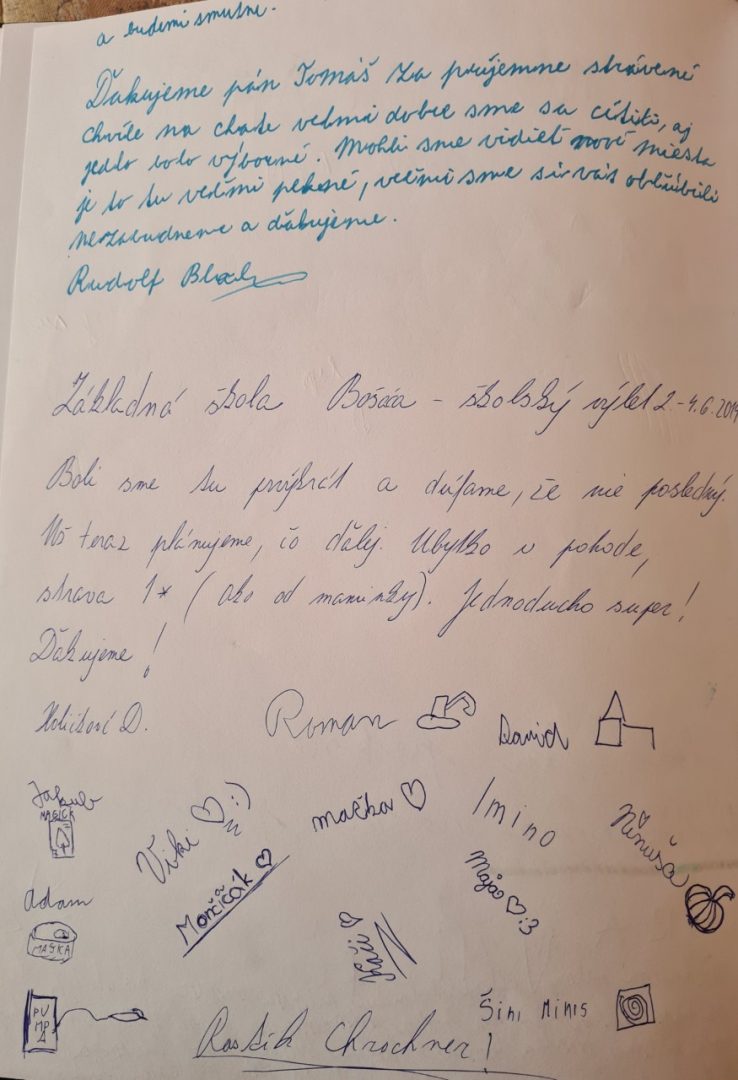 a budemi smutne.
Ďakujeme pán Tomáš za príjemne strávené
chvíle na chate veľmi dobre sme sa cítili, aj
jedlo bolo výborné. Mohli sme vidieť nové miesta
je to tu veľmi pekné, veľmi sme si vás obľúbili
nezabudneme a ďakujeme.
Rudolf
Základná škola Bošáca - školský výlet 2.-4.6.2019
Boli sme tu prvýkrát a dúfame, že nie posledný.
Už teraz plánujeme, čo ďalej. Ubytko v pohode,
strava 1* (ako od maminky). Jednoducho super!
Ďakujeme!
D.
Roman
David
Jakub
MAGICK
Viki :)
mačka
Imino
Ninuša
Majo :3
Adam
MAŠKA
PUMPA
Šini Minis
Rastik Chrochner!